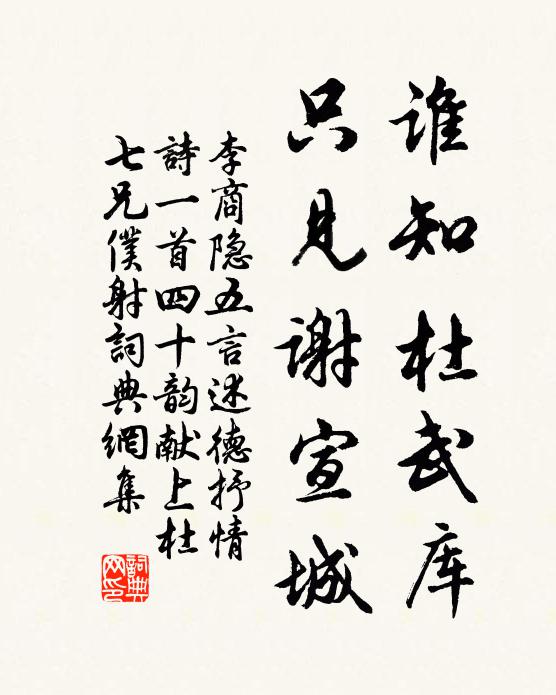 谁知杜武库
只见谢宣城
李商隐五言述德抒情
詩一首四十韵献上杜
七兄僕射詞典網集
詞典网印